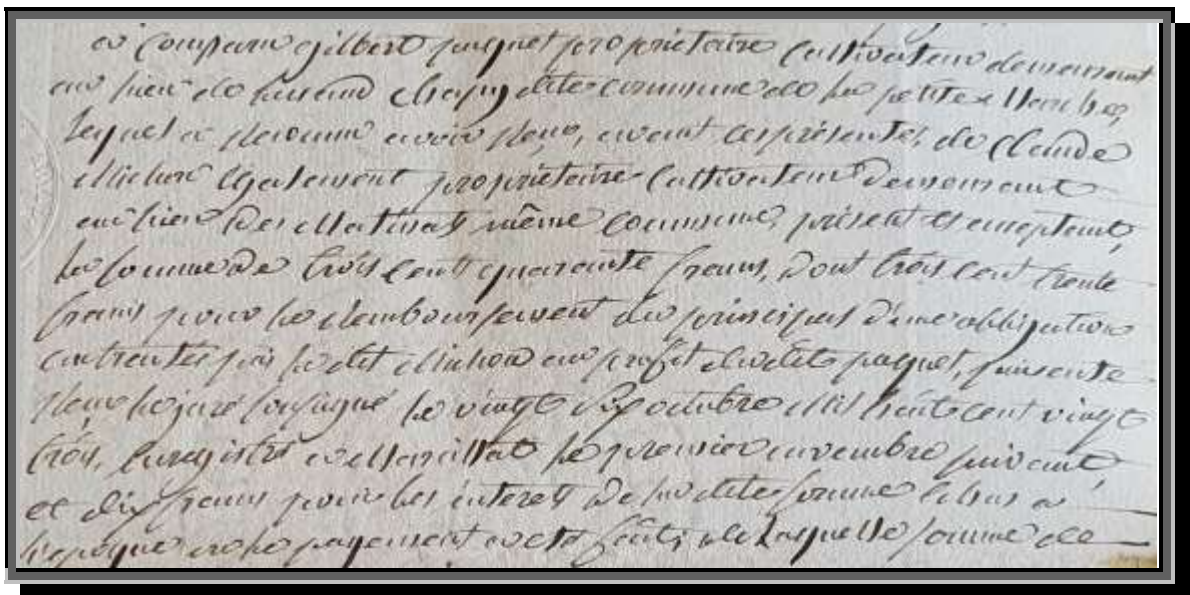 a comparu gilbert paquet proprietaire cultivateur demeurant
au lieu de chapy dite commune de la petite Marche,
lequel a reconnu avoir reçu, avant ces présentes, de Claude
Michon Egalement proprietaire Cultivateur Demeurant
au lieu Des Matinats même commune, présent et acceptant,
la somme De trois Cent quarante francs, Dont trois cent trente
francs pour le Remboursement du principal d'une obligation
contractée par ledit Michon au profit dudit paquet, suivant
Reçu le juré soussigné le vingt six octobre Mil huit cent vingt
trois, Enregistré a Marcillat le premier novembre suivant,
et dix francs pour les interets De ladite somme
l'epoque ou le payement a été fait; de Laquelle somme de